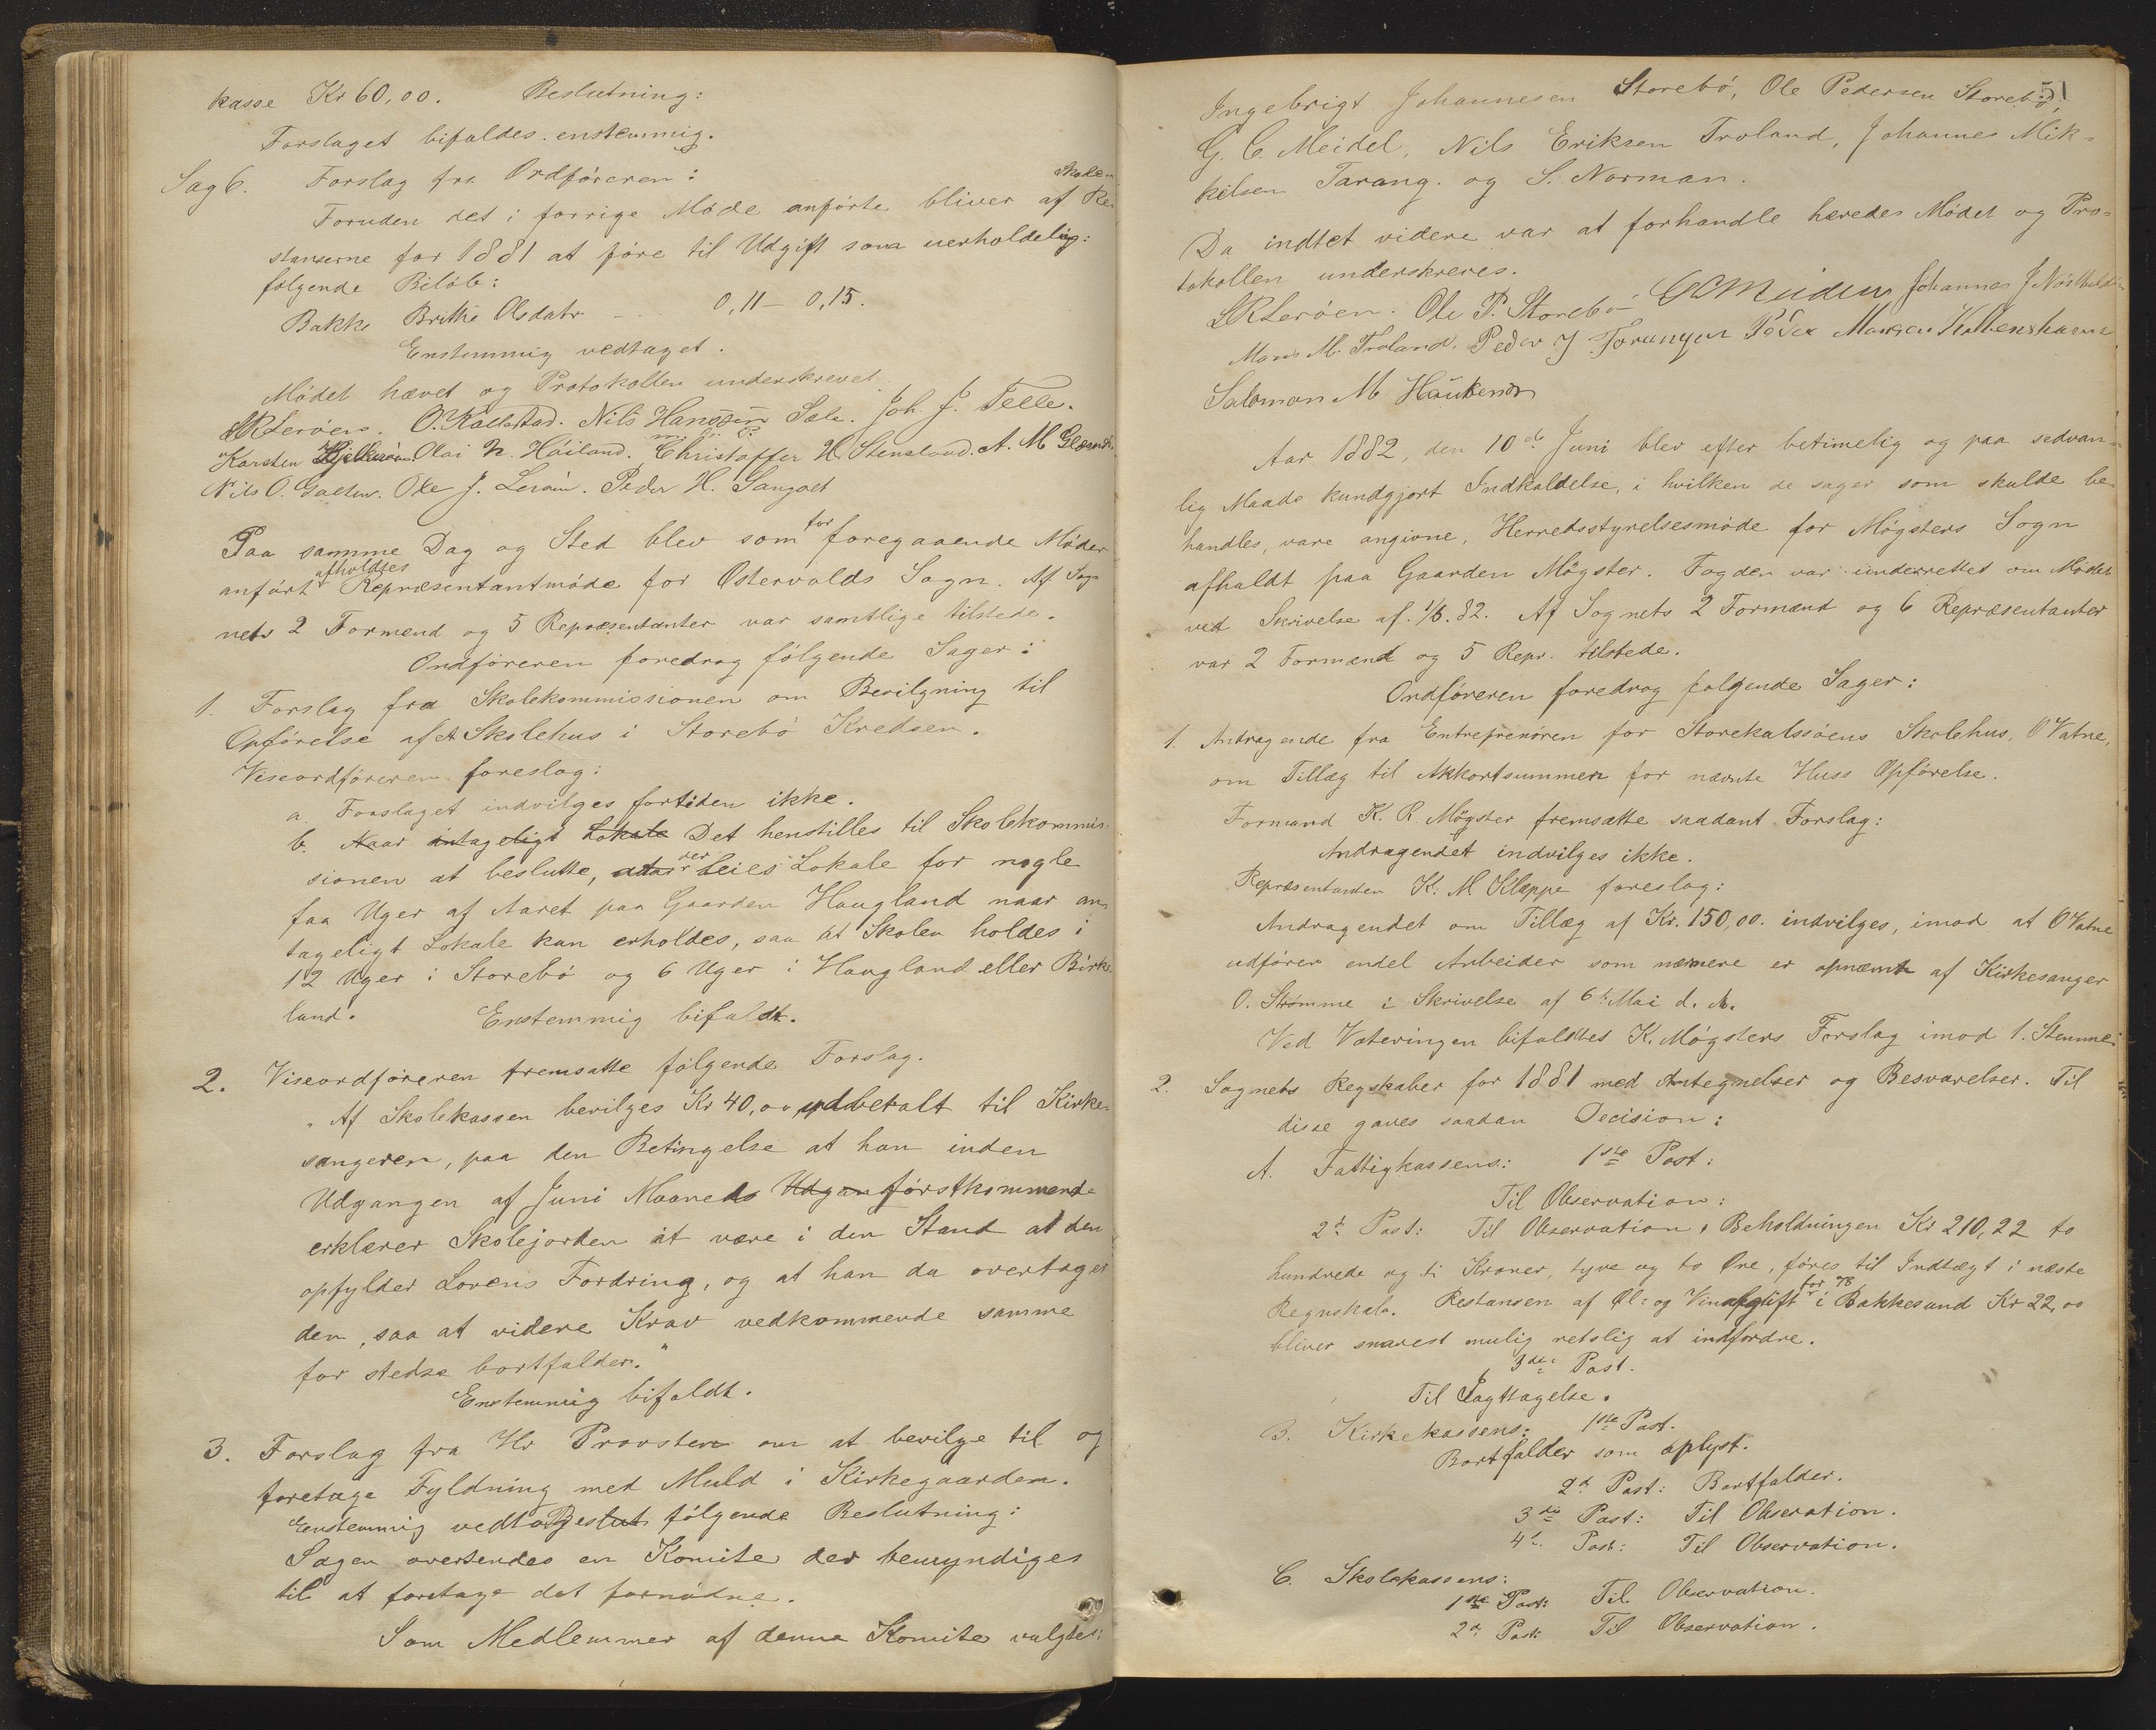 kasse Kr 60,00. Beslutning:
Forslaget bifaldes enstemmig.
Sag 6. Forslag fra Ordføreren:
Foruden det i forrige Møde anførte bliver af Skole Re-
stanserne for 1881 at føre til Udgift som uerholdelig:
følgende Biløb:
Bakke Brithe Olsdatr - - 0,11 - 0,15.
Enstemmig vedtaget.
Mødet hævet og Protokollen underskrevet
LRLerøen. O. Kaelestad. Nils Hanssen Sale. Joh. J. Telle.
Karsten Olai N. Høiland. Christoffer H. Stensland. A. M
Nils O. Ole J. Lerøin. Peder H. Sangolt
Paa samme Dag og Sted blev som for foregaaende Møder
anført afholdtes Repræsentantmøde for Østervolds Sogn. Af Sog-
nets 2 Formænd og 5 Repræsentanter var samtlige tilstede.
Ordføreren foredrog følgende Sager:
1. Forslag fra Skolekommissionen om Bevilgning til
Opførelse af et Skolehus i Storebø Kredsen.
Viseordføreren foreslog:
a. Forslaget indvilges fortiden ikke.
b. Naar antageligt Lokale Det henstilles til Skolekommis-
sionen at beslutte, der leies Lokale for nogle
faa Uger af Aaret paa Gaarden Haugland naar an-
tageligt Lokale kan erholdes, saa at Skolen holdes i
12 Uger i Storebø og 6 Uger i Haugland eller Birke-
land. Enstemmig bifaldt.
2. Viseordføreren fremsatte følgende Forslag.
"Af Skolekassen bevilges Kr 40,00 udbetalt til Kirke-
sangeren, paa den Betingelse at han inden
Udgangen af Juni Maaneds Udgan førstkommende
erklærer Skolejorden at være i den Stand at den
opfylder Lovens Fordring, og at han da overtager
den, saa at videre Krav vedkommende samme
for stedse bortfalder."
Enstemmig bifaldt.
3. Forslag fra Hr Provsten om at bevilge til og
foretage Fyldning med Muld i Kirkegaarden.
Eenstemmig vedtoges Beslut følgende Beslutning:
Sagen oversendes en Komite der bemyndiges
til at foretage det fornødne.
Som Medlemmer af denne Komite valgtes:
51
Ingebrigt Johannesen Storebø, Ole Pedersen Storebø,
G. C. Meidel, Nils Eriksen Troland, Johannes Mik-
kelsen Tarang. og S. Norman.
Da indtet videre var at forhandle hævedes Mødet og Pro-
tokollen underskreves.
LRLerøen. Ole P. Storebø GCMeidell Johannes J
Mons M. Troland. Peder J Torangen Peder Monsen
Salomon M Haukenæs
Aar 1882, den 10de Juni blev efter betimelig og paa sedvan-
lig Maade kundgjort Indkaldelse, i hvilken de sager som skulde be-
handles, vare angivne, Herredsstyrelsesmøde for Møgsters Sogn
afholdt paa Gaarden Møgster. Fogden var underrettet om Mødet
ved Skrivelse af. 1/6. 82. Af Sognets 2 Formænd og 6 Repræsentanter
var 2 Formænd og 5 Repr. tilstede.
Ordføreren foredrog følgende Sager:
1. Andragende fra Entreprenøren for Storekalsøens Skolehus, O Vatne,
om Tillæg til Akkortsummen for nævnte Huss Opførelse.
Formand K. R. Møgster fremsatte saadant Forslag:
Andragendet indvilges ikke.
Repræsentanten K. M. Kleppe foreslog:
Andragendet om Tillæg af Kr. 150,00. indvilges, imod at O Vatne
udfører endel Arbeider som nærmere er opnævnt af Kirkesanger
O. Strømme i Skrivelse af 6te Mai d. A.
Ved Voteringen bifaldtes K. Møgsters Forslag imod 1. Stemme.
2. Sognets Regskaber for 1881 med Antegnelser og Besvarelser. Til
disse gaves saadan Decision:
A. Fattigkassens: 1ste Post:
Til Observation:
2d Post: Til Observation, Beholdningen Kr 210,22 to
hundrede og ti Kroner, tyve og to Øre, føres til Indtægt i næste
Regnskab. Restansen af Øl- og Vinafgift for 78 i Bakkesund Kr 22,00
bliver snarest mulig retslig at indfordre.
3die Post.
Til Iagttagelse.
B. Kirkekassens: 1ste Post.
Bortfalder som oplyst.
2d Post: Bortfalder.
3die Post: Til Obseration.
4de Post: Til Observation.
C. Skolekassens:
1ste Post: Til Observation.
2d Post: Til Observation.